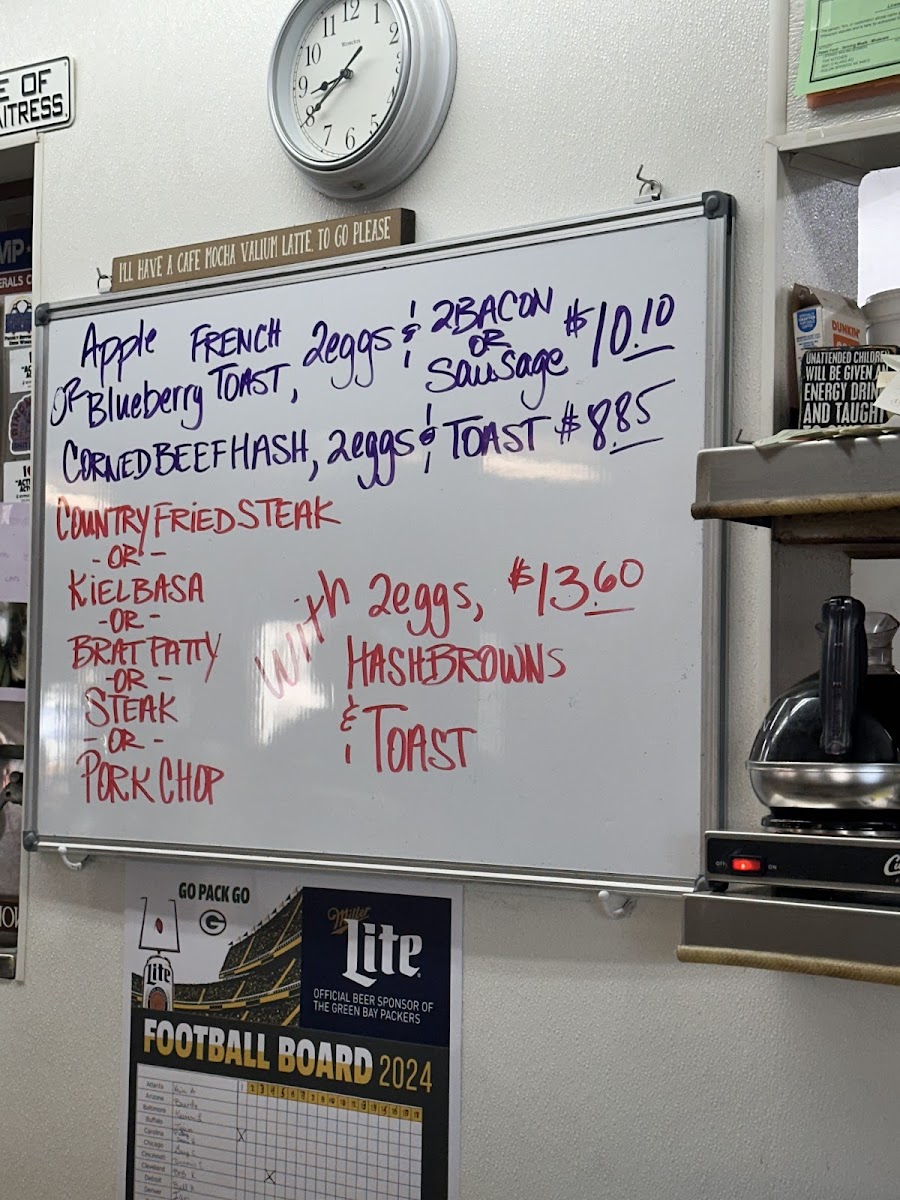 12
11 1
10 2
9
8 4
7 6 5
E OF
AITRESS.
I'LL HAVE A CAFE MOCHA VALIUM LATTE, TO GO PLEASE
Apple FRENCH 2eggs & 2BACON $10.10
OR Blueberry TOAST, OR
Sausage
CORNED BEEF HASH, 2eggs & TOAST $8.85
COUNTRY FRIED STEAK
-OR-
KiELBASA
-OR-
BRAT PATTY
-OR-
STEAK
-OR-
PORK CHOP
With 2eggs, $13.60
HASHBROWNS
& TOAST
DUNKIN'
UNATTENDED CHILDREN
WILL BE GIVEN AN
ENERGY DRIN
AND TAUGHT
OFF ON
GO PACK GO
G
Lite
Miller
Lite
OFFICIAL BEER SPONSOR OF
THE GREEN BAY PACKERS
FOOTBALL BOARD 2024
Atlanta
Arizona
Baltimore
Buffalo
Carolina
Chicago
Cincinnati
Cleveland
Detroit
Denver